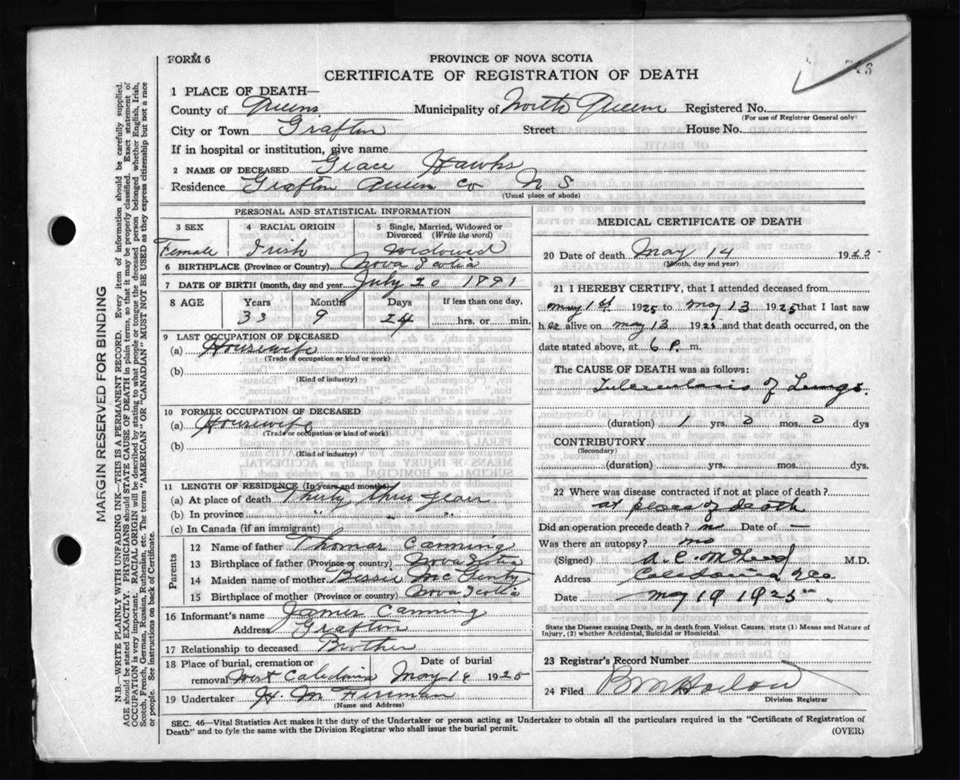 FORM 6
PROVINCE OF NOVA SCOTIA
CERTIFICATE OF REGISTRATION OF DEATH
1 PLACE OF DEATH—
County of Queens Municipality of North Queen Registered No.
(For use of Registrar General only)
City or Town Grafton Street House No.
If in hospital or institution, give name
2 NAME OF DECEASED Grace Hawks
Residence Grafton Queen Co N S
(Usual place of abode)
PERSONAL AND STATISTICAL INFORMATION
3 SEX 4 RACIAL ORIGIN 5 Single, Married, Widowed or Divorced (Write the word)
Female Irish Widowed
6 BIRTHPLACE (Province or Country) Nova Scotia
7 DATE OF BIRTH (month, day and year) July 20 1891
8 AGE Years Months Days If less than one day,
33 9 24 hrs. or min.
9 LAST OCCUPATION OF DECEASED
(a) Housewife
(Trade or occupation or kind of work)
(b)
(Kind of industry)
10 FORMER OCCUPATION OF DECEASED
(a) Housewife
(Trade or occupation or kind of work)
(b)
(Kind of industry)
11 LENGTH OF RESIDENCE (In years and months)
(a) At place of death Thirty three years
(b) In province " " "
(c) In Canada (if an immigrant)
Parents
12 Name of father Thomas Canning
13 Birthplace of father (Province or country) Nova Scotia
14 Maiden name of mother Bessie
15 Birthplace of mother (Province or country) Nova Scotia
16 Informant's name James Canning
Address Grafton
17 Relationship to deceased Brother
18 Place of burial, cremation or removal West Caledonia Date of burial May 1925
19 Undertaker H. M
(Name and Address)
MEDICAL CERTIFICATE OF DEATH
20 Date of death May 14 1925
(Month, day and year)
21 I HEREBY CERTIFY, that I attended deceased from
May 1st 1925 to May 13 1925 that I last saw
h er alive on May 13 1925 and that death occurred, on the
date stated above, at 6 P. m.
The CAUSE OF DEATH was as follows:
Tuberculosis of Lungs.
(duration) 1 yrs. mos. dys
CONTRIBUTORY
(Secondary)
(duration) yrs. mos. dys.
22 Where was disease contracted if not at place of death?
at place of death
Did an operation precede death? no Date of —
Was there an autopsy? no
(Signed) M.D.
Address Caledonia
Date May 19 1925
State the Disease causing Death, or in death from Violent Causes, state (1) Means and Nature of
Injury, (2) whether Accidental, Suicidal or Homicidal.
23 Registrar's Record Number
24 Filed
Division Registrar
SEC. 46—Vital Statistics Act makes it the duty of the Undertaker or person acting as Undertaker to obtain all the particulars required in the "Certificate of Registration of
Death" and to fyle the same with the Division Registrar who shall issue the burial permit.
(OVER)
MARGIN RESERVED FOR BINDING
N.B.—WRITE PLAINLY WITH UNFADING INK—THIS IS A PERMANENT RECORD. Every item of information should be carefully supplied.
AGE should be stated EXACTLY. PHYSICIANS should STATE CAUSE OF DEATH in plain terms, so that it may be properly classified. Exact statement of
OCCUPATION is very important. RACIAL ORIGIN will be described by stating to what people or tongue the deceased person belonged whether English, Irish,
Scotch, French, German, Russian, Ruthenian, etc. The terms "AMERICAN" OR "CANADIAN" MUST NOT BE USED as they express citizenship but not a race
or people. See instructions on back of Certificate.